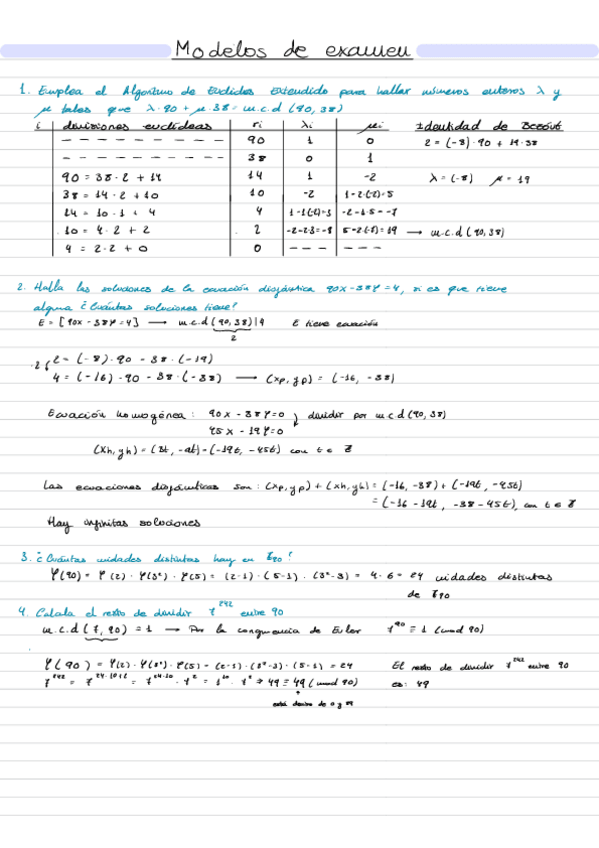 Modelos de examen
1. Emplea el Algoritmo de Euclides Extendido para hallar números enteros λ y
μ tales que λ·90 + μ·38 = m.c.d (90,38)
i | divisiones euclídeas | ri | λi | μi | Identidad de Bezout
- - - - - - - - - | 90 | 1 | 0 | 2 = (-8)·90 + 19·38
- - - - - - - - - | 38 | 0 | 1
90 = 38·2 + 14 | 14 | 1 | -2 | λ = (-8) μ = 19
38 = 14·2 + 10 | 10 | -2 | 1-2·(-2)=5
14 = 10·1 + 4 | 4 | 1-1·(-2)=3 | -2-1·5=-7
10 = 4·2 + 2 | 2 | -2-2·3=-8 | 5-2·(-7)=19 → m.c.d (90,38)
4 = 2·2 + 0 | 0 | - - - | - - -
2. Halla las soluciones de la ecuación diofántica 90x - 38y = 4, si es que tiene
alguna ¿Cuántas soluciones tiene?
E = [90x - 38y = 4] → m.c.d (90,38) | 4 E tiene
2
·2 ( 2 = (-8)·90 - 38·(-19)
4 = (-16)·90 - 38·(-38) → (xp, yp) = (-16, -38)
Ecuación homogénea: 90x - 38y = 0 ) dividir por m.c.d (90,38)
45x - 19y = 0
(xh, yh) = (-19t, -45t) con t ∈ Z
Las ecuaciones diofánticas son: (xp, yp) + (xh, yh) = (-16, -38) + (-19t, -45t)
= (-16 - 19t, -38 - 45t), con t ∈ Z
Hay infinitas soluciones
3. ¿Cuántas unidades distintas hay en Z90?
φ(90) = φ(2)·φ(3²)·φ(5) = (2-1)·(5-1)·(3²-3) = 4·6 = 24 unidades distintas
de Z90
4. Calcula el resto de dividir 7²⁴² entre 90
m.c.d (7, 90) = 1 → Por la congruencia de Euler 7⁹⁰ ≡ 1 (mod 90)
φ(90) = φ(2)·φ(3²)·φ(5) = (2-1)·(3²-3)·(5-1) = 24 El resto de dividir 7²⁴² entre 90
7²⁴² = 7²⁴·¹⁰⁺² = 7²⁴·¹⁰ · 7² = 1¹⁰ · 7² → 49 ≡ 49 (mod 90) es: 49
está dentro de 0 y 89